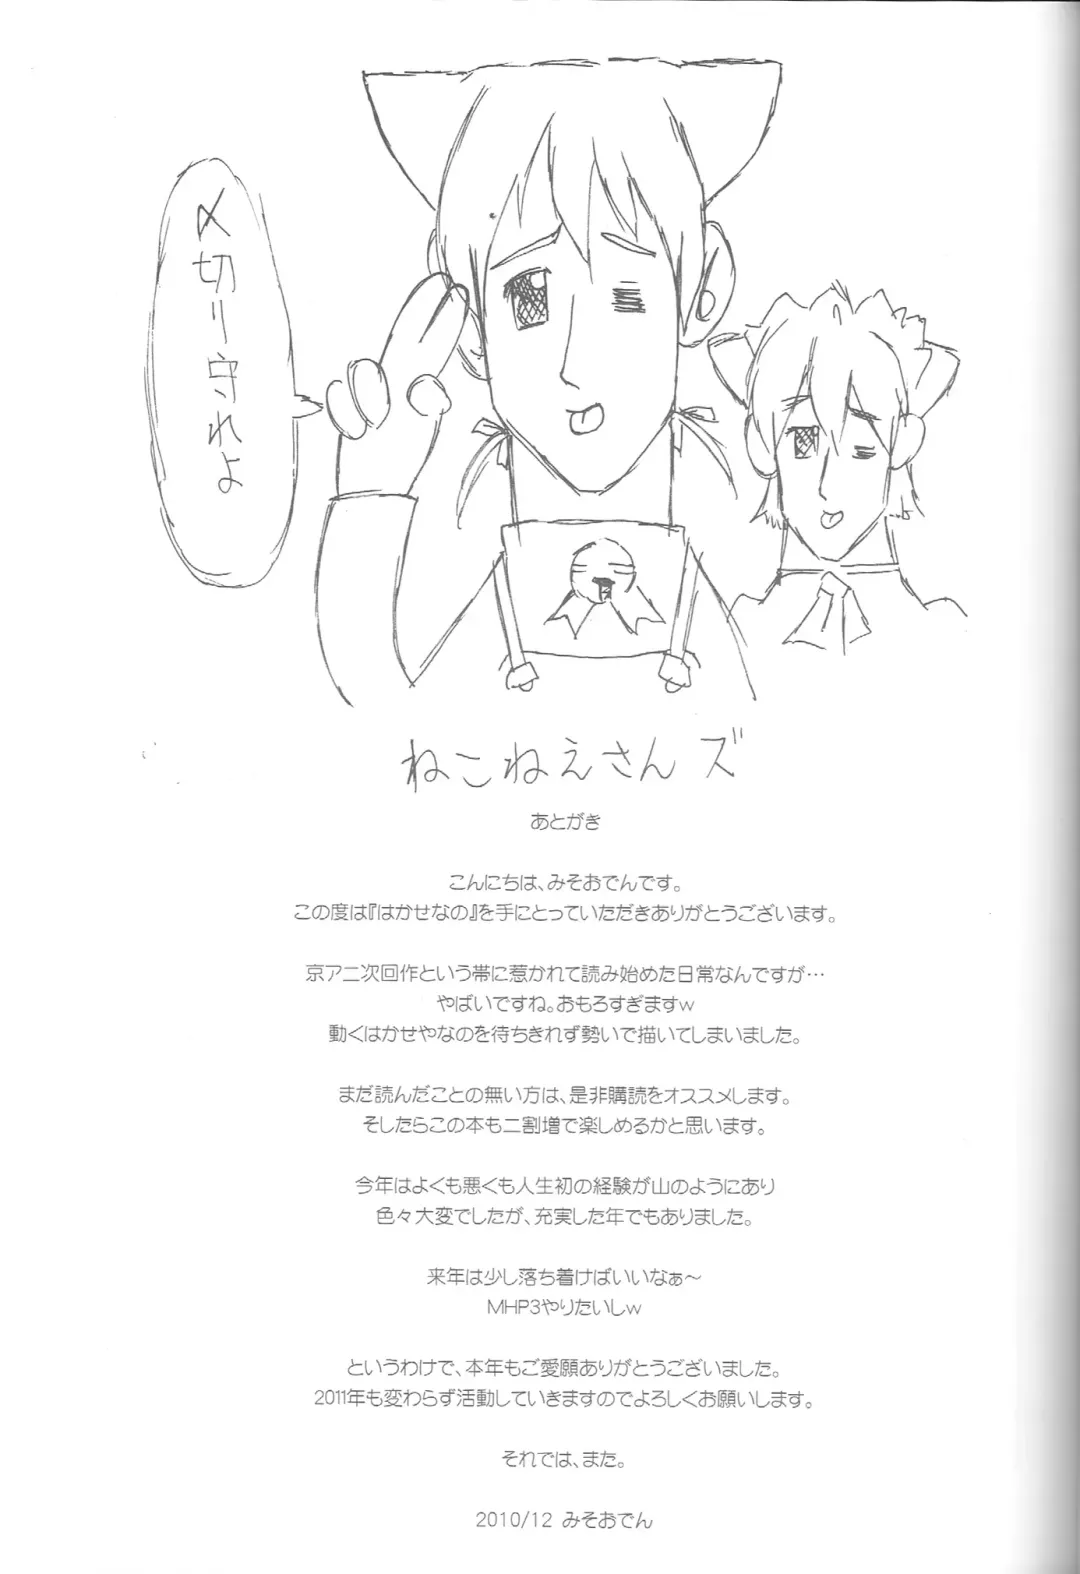 〆切り守れよ
ねこねえさんズ
あとがき
こんにちは、みそおでんです。
この度は『はかせなの』を手にとっていただきありがとうございます。
京アニ次回作という帯に惹かれて読み始めた日常なんですが…
やばいですね。おもろすぎますw
動くはかせやなのを待ちきれず勢いで描いてしまいました。
まだ読んだことの無い方は、是非購読をオススメします。
そしたらこの本も二割増で楽しめるかと思います。
今年はよくも悪くも人生初の経験が山のようにあり
色々大変でしたが、充実した年でもありました。
来年は少し落ち着けばいいなぁ～
MHP3やりたいしw
というわけで、本年もご愛願ありがとうございました。
2011年も変わらず活動していきますのでよろしくお願いします。
それでは、また。
2010/12 みそおでん